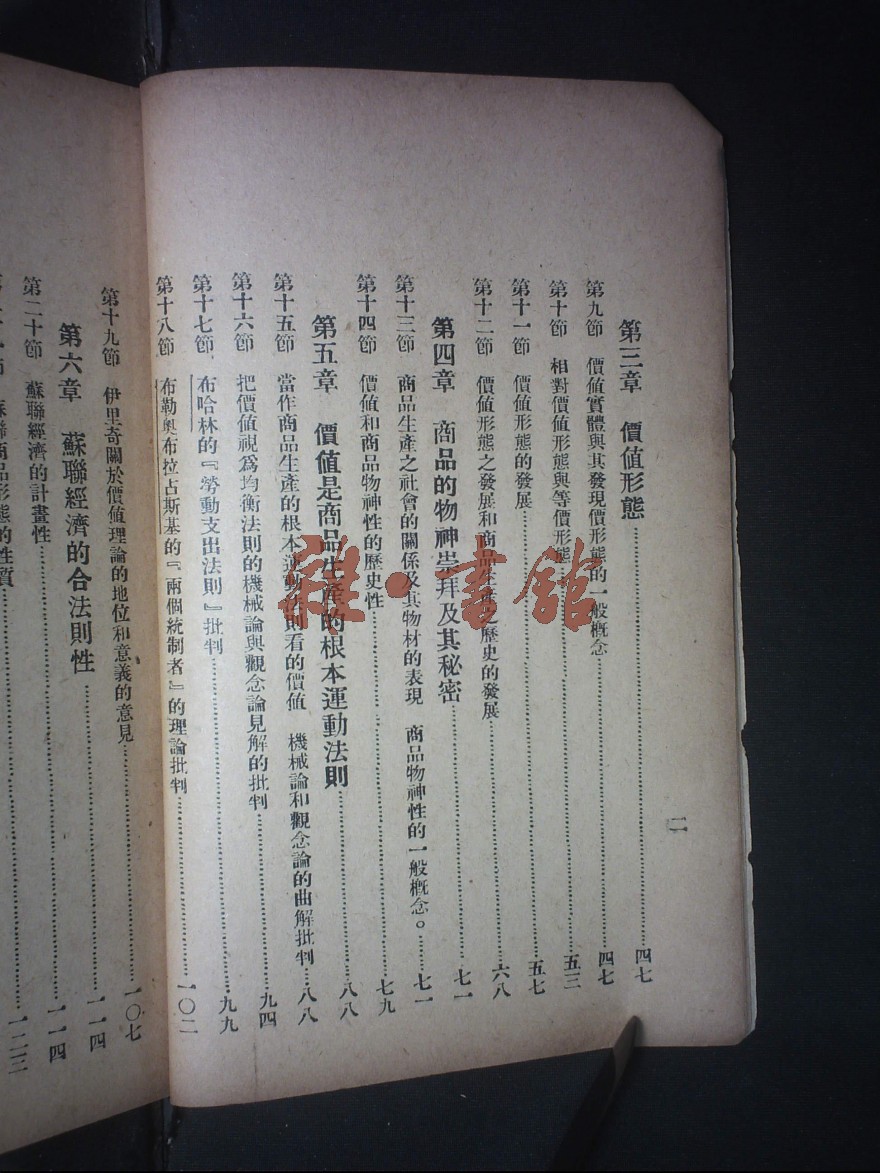 二
第三章　價值形態……………四七
第九節　價值實體與其發現價形態的一般概念……………四七
第十節　相對價值形態與等價形態……………五三
第十一節　價值形態的發展……………五七
第十二節　價值形態之發展和商品生產之歷史的發展……………六八
第四章　商品的物神崇拜及其秘密……………七一
第十三節　商品生產之社會的關係及其物材的表現　商品物神性的一般概念。……七一
第十四節　價值和商品物神性的歷史性……………七九
第五章　價值是商品生產的根本運動法則……………八八
第十五節　當作商品生產的根本運動法則看的價值　機械論和觀念論的曲解批判……八八
第十六節　把價值視爲均衡法則的機械論與觀念論見解的批判……………九四
第十七節　布哈林的『勞動支出法則』批判……………九九
第十八節　布勒奧布拉占斯基的『兩個統制者』的理論批判……………一〇二
第十九節　伊里奇關於價值理論的地位和意義的意見……………一〇七
第六章　蘇聯經濟的合法則性……………一一四
第二十節　蘇聯經濟的計畫性……………一一四
蘇聯商品形態的性質……………一二三
雜·書館